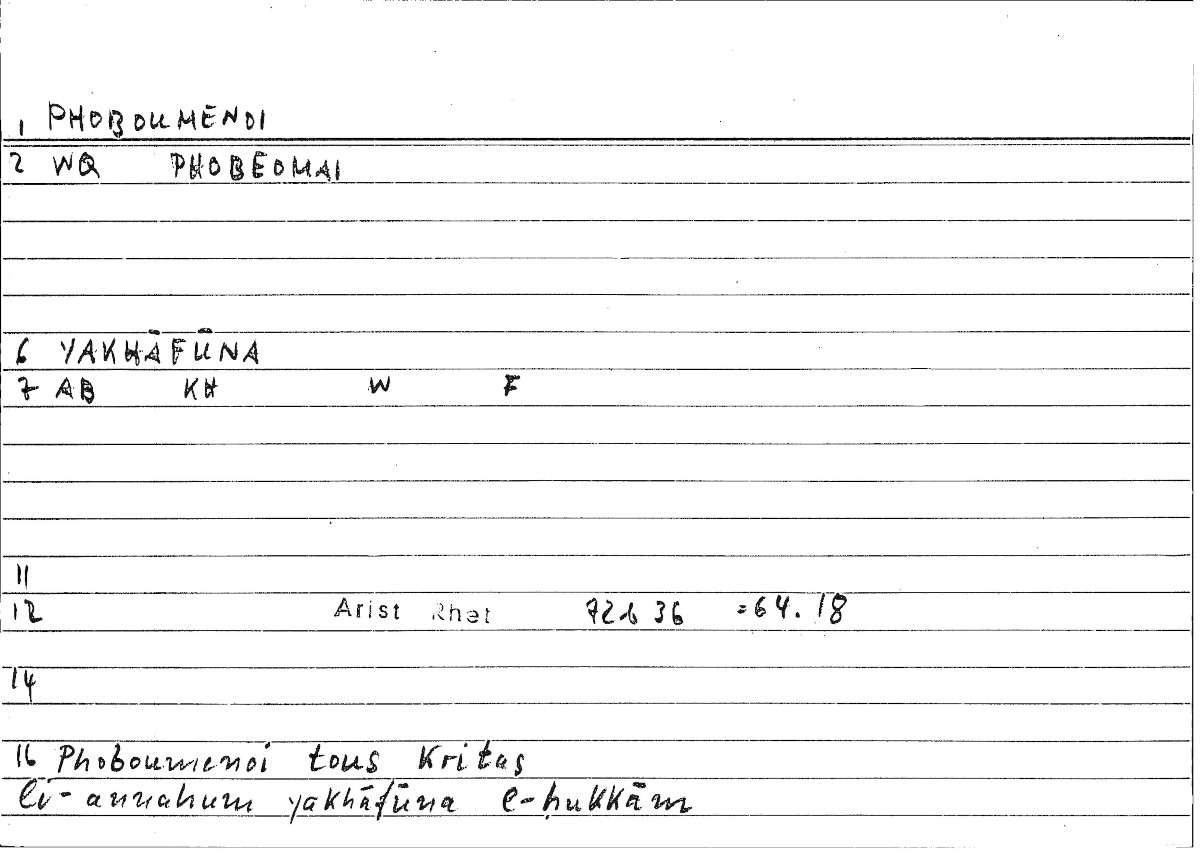 1 PHOBOUMENOI
2 WQ PHOBEOMAI
6 YAKHĀFŪNA
7 AB KH W F
11
12 Arist Rhet 72b 36 =64.18
14
16 Phoboumenoi tous Kritas
li-annahum yakhāfūna l-ḥukkām